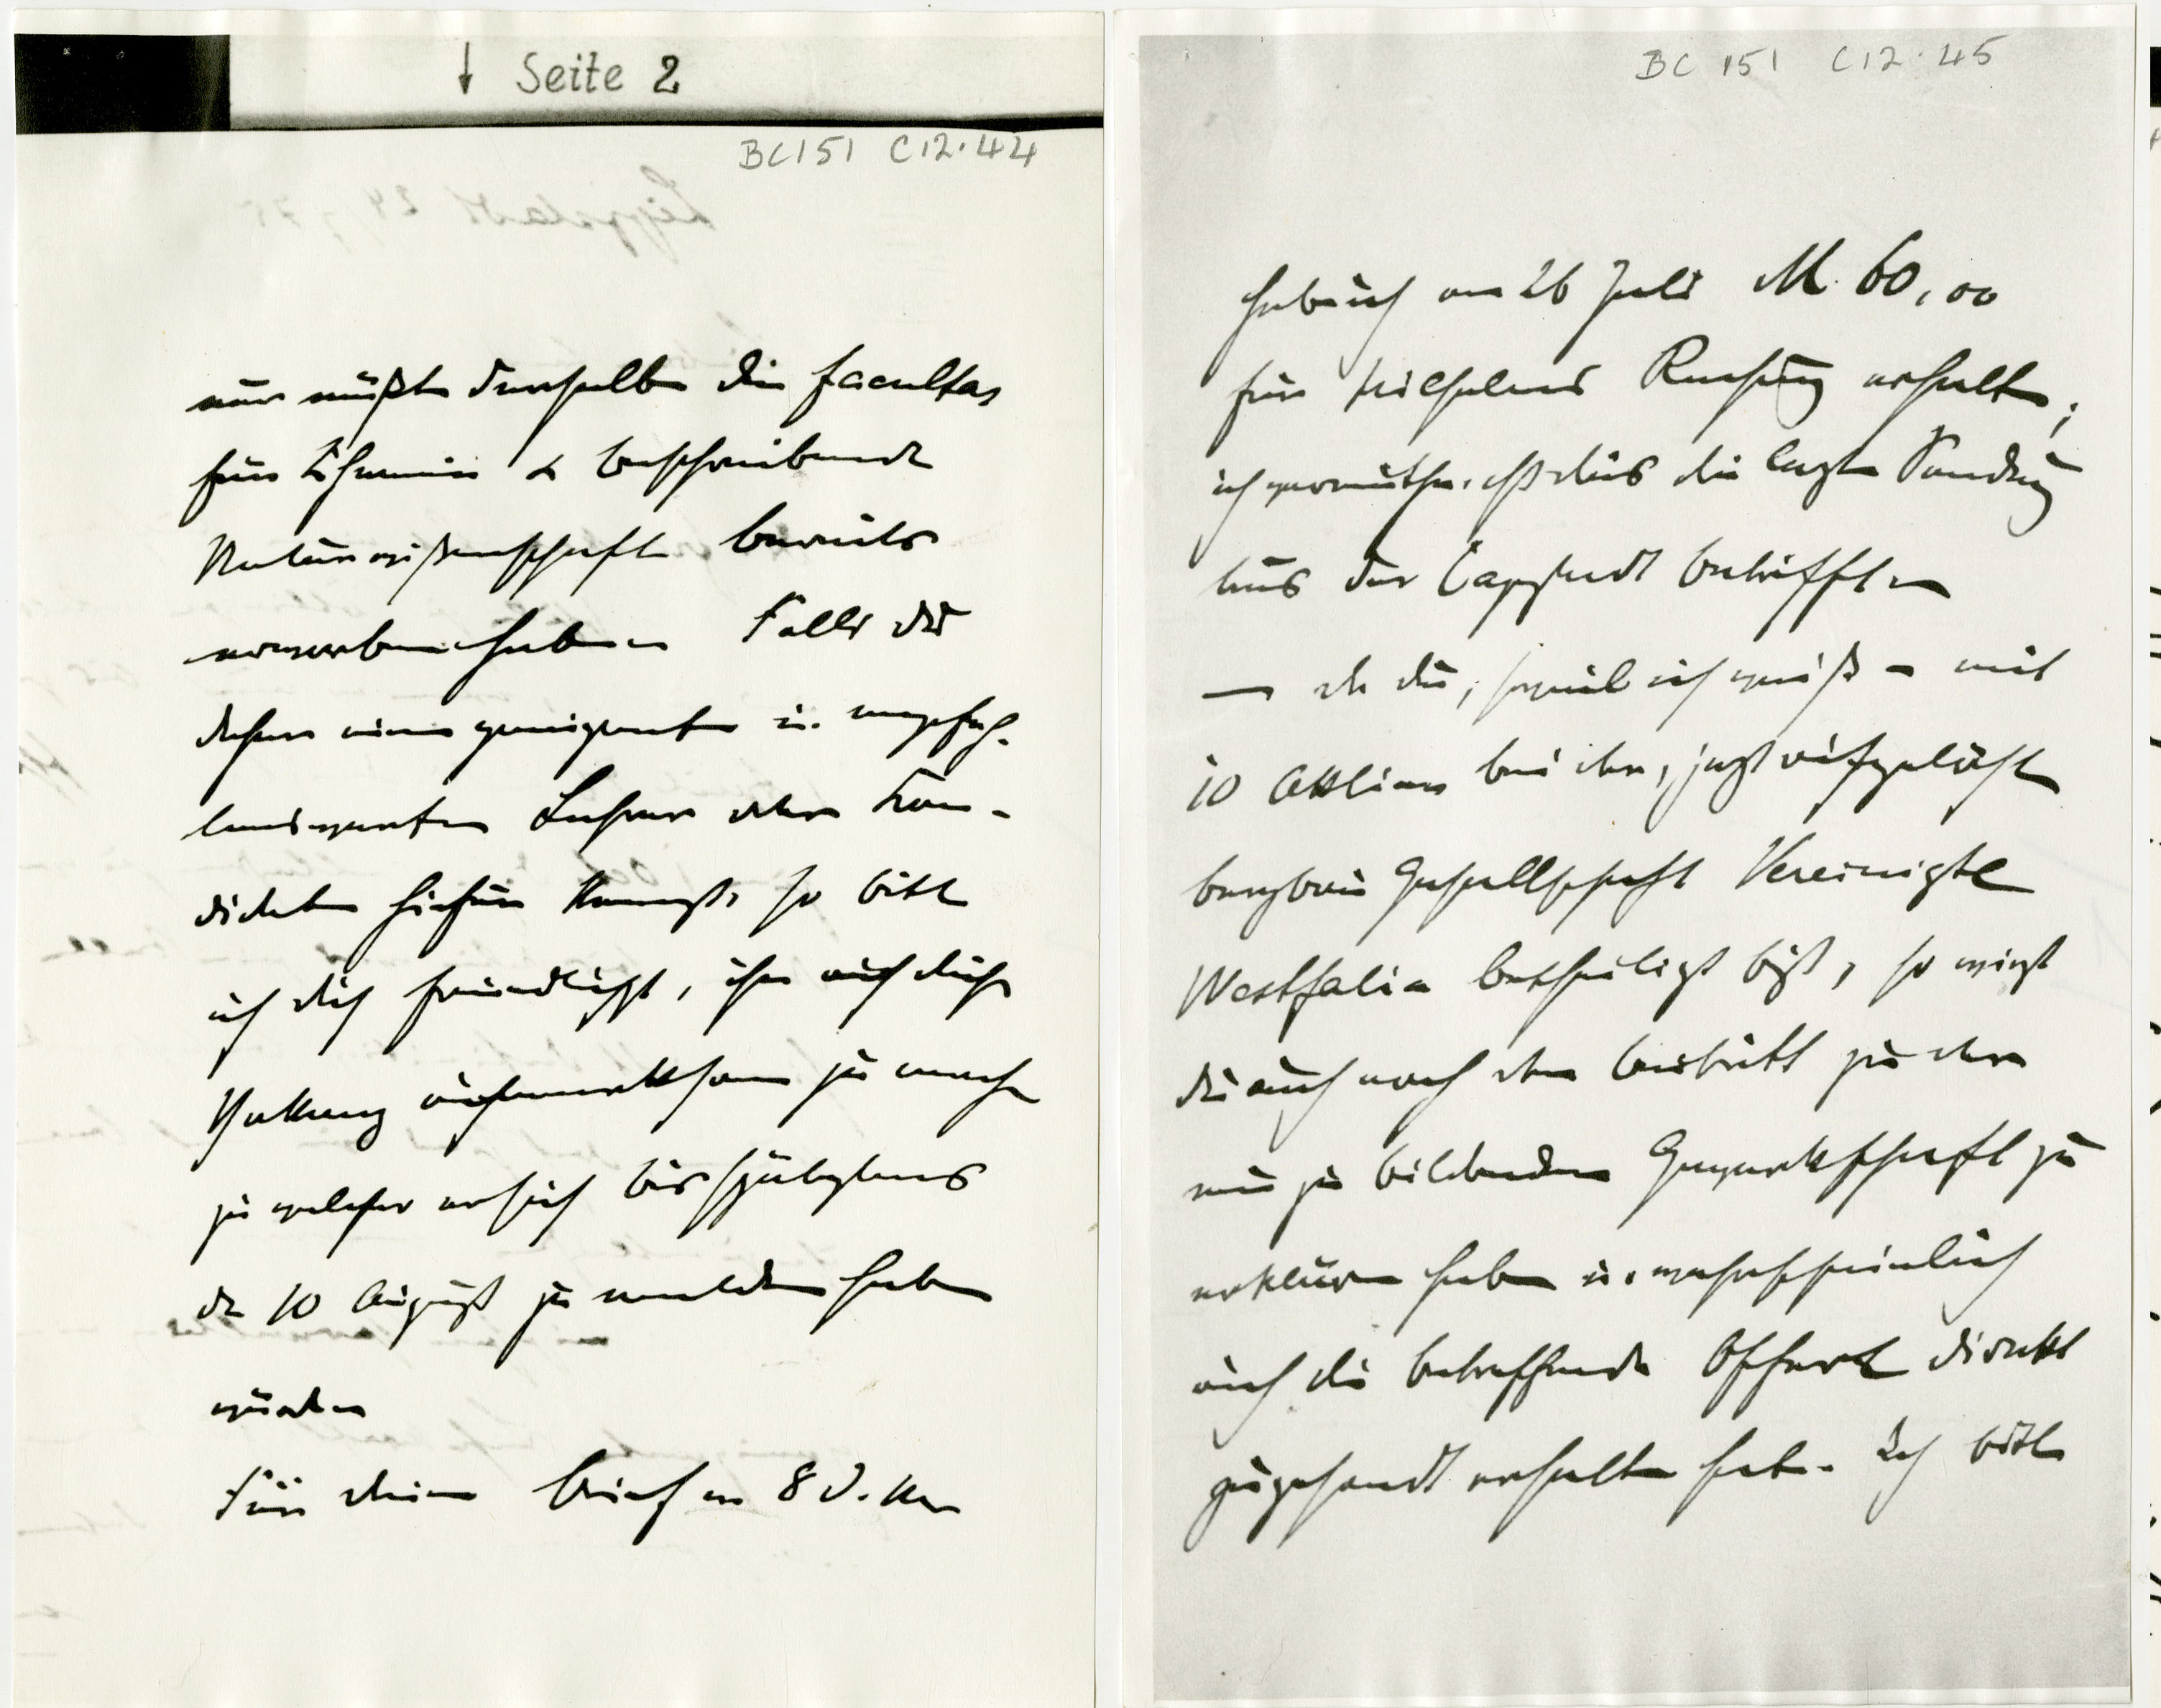 ↓ Seite 2
BC151 C12.44
nur müßte derselbe die facultas
für Chemie & beschreibende
Naturwißenschaft bereits
erworben haben Falls Du
daher einen geeigneten u. empfeh-
lenswerten Lehrer oder Kan-
didaten hiefür kennst, so bitte
ich dich freundlichst, ihn auf diese
Vakanz aufmerksam zu machen
zu welcher er sich bis spätestens
den 10 August zu melden haben
würde
Für deinen Brief
BC 151 C12.45
habe ich am 26 Juli M. 60,00
für Wilhelms Rechnung erhalten,
ich vermuthe, daß dies die letzte Sendung
aus der Capstadt betrifft
— da du, soviel ich weiß - mit
10 Aktien bei der, jetzt aufgelösten
bergbau Gesellschaft Vereinigte
Westfalia betheiligt bist, so wirst
du auch noch den beitritt zu der
neu zu bildenden Gewerkschaft zu
erklären haben u. wahrscheinlich
auch die betreffende Offerte direkt
zugesandt erhalten haben. Ich bitte